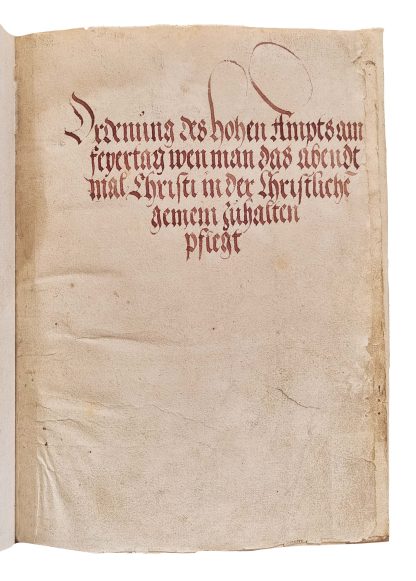 Ordenung des hohen Ampts am
feyertag wen man das abendt
mal Christi in der Christlichē
gemein zuhalten
pflegt